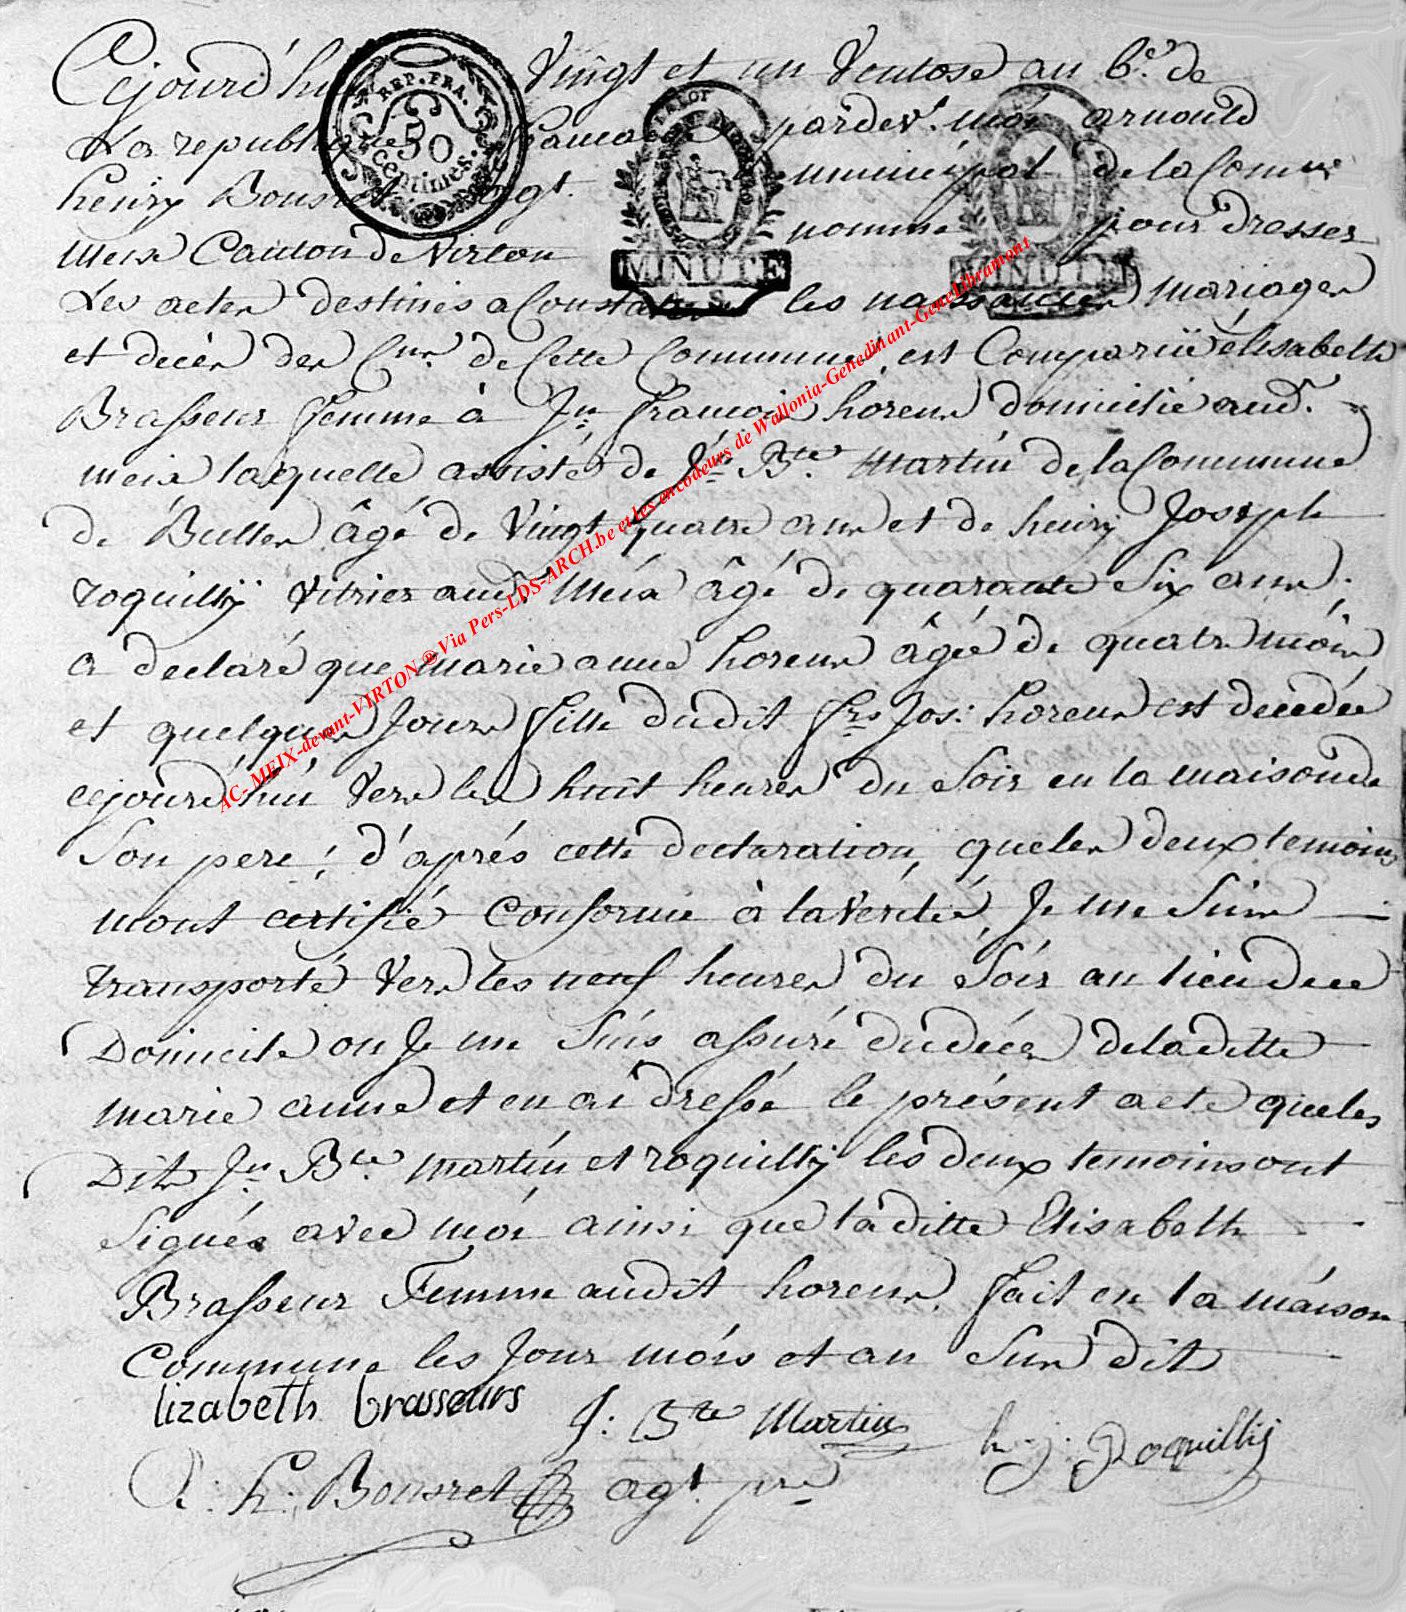 Cejourd'hui Vingt et un Ventose an 6.e de
La republique francaise pardev.t moi arnould
henry Bousret agt. municipal de la Comne
meix Canton de Virton nommé pour dresser
Les acten destinés a Constater les naissancen mariagen
et decèn den Cns. de Cette Commune, est Compariië élisabeth
Brasseur femme à Jn francoi horeur domiciliè aud.t
meix laquelle assistés de Jn. Bte. Martin de la Commune
de Bellen âgé de Vingt quatre ans et de henry Joseph
roquillÿ Vitrier aud. Meix âgé de quarante Six ans;
a declaré que marie anne horeur âgée de quatre mois
et quelquen Jours fille dudit frs Jos: horeur est decedée
cejourd'hui Vers les huit heuren du Soir en la maison de
Son pere; d'aprés cette declaration, que len deux temoins
mont certifié Conforme à la Verité, Je me Suis
transporté Vers les neuf heuren du Sóir au lieu de ce
Domicile ou Je me Súis assuré du décès de la ditte
marie anne et en ai dressé le présent acte que les
Dits Jn. Bte. Martin et roquillÿ les deux temoins ont
Signés avec mói ainsi que la ditte Elisabeth
Brasseur Femme audit horeur, fait en la maison
Commune les Jour mois et an Sus dit
lizabeth brasseurs
J: Bte Martin
h. j. Roquillij
A: h: Bousret agt. pre
REP. FRA.
50
centimes.
MINUTE
MINUTE
AC- MEIX-devant-VIRTON ® Via Pers-LDS-ARCH.be et les encodeurs de Wallonia-Genedinant-GeneLibramont